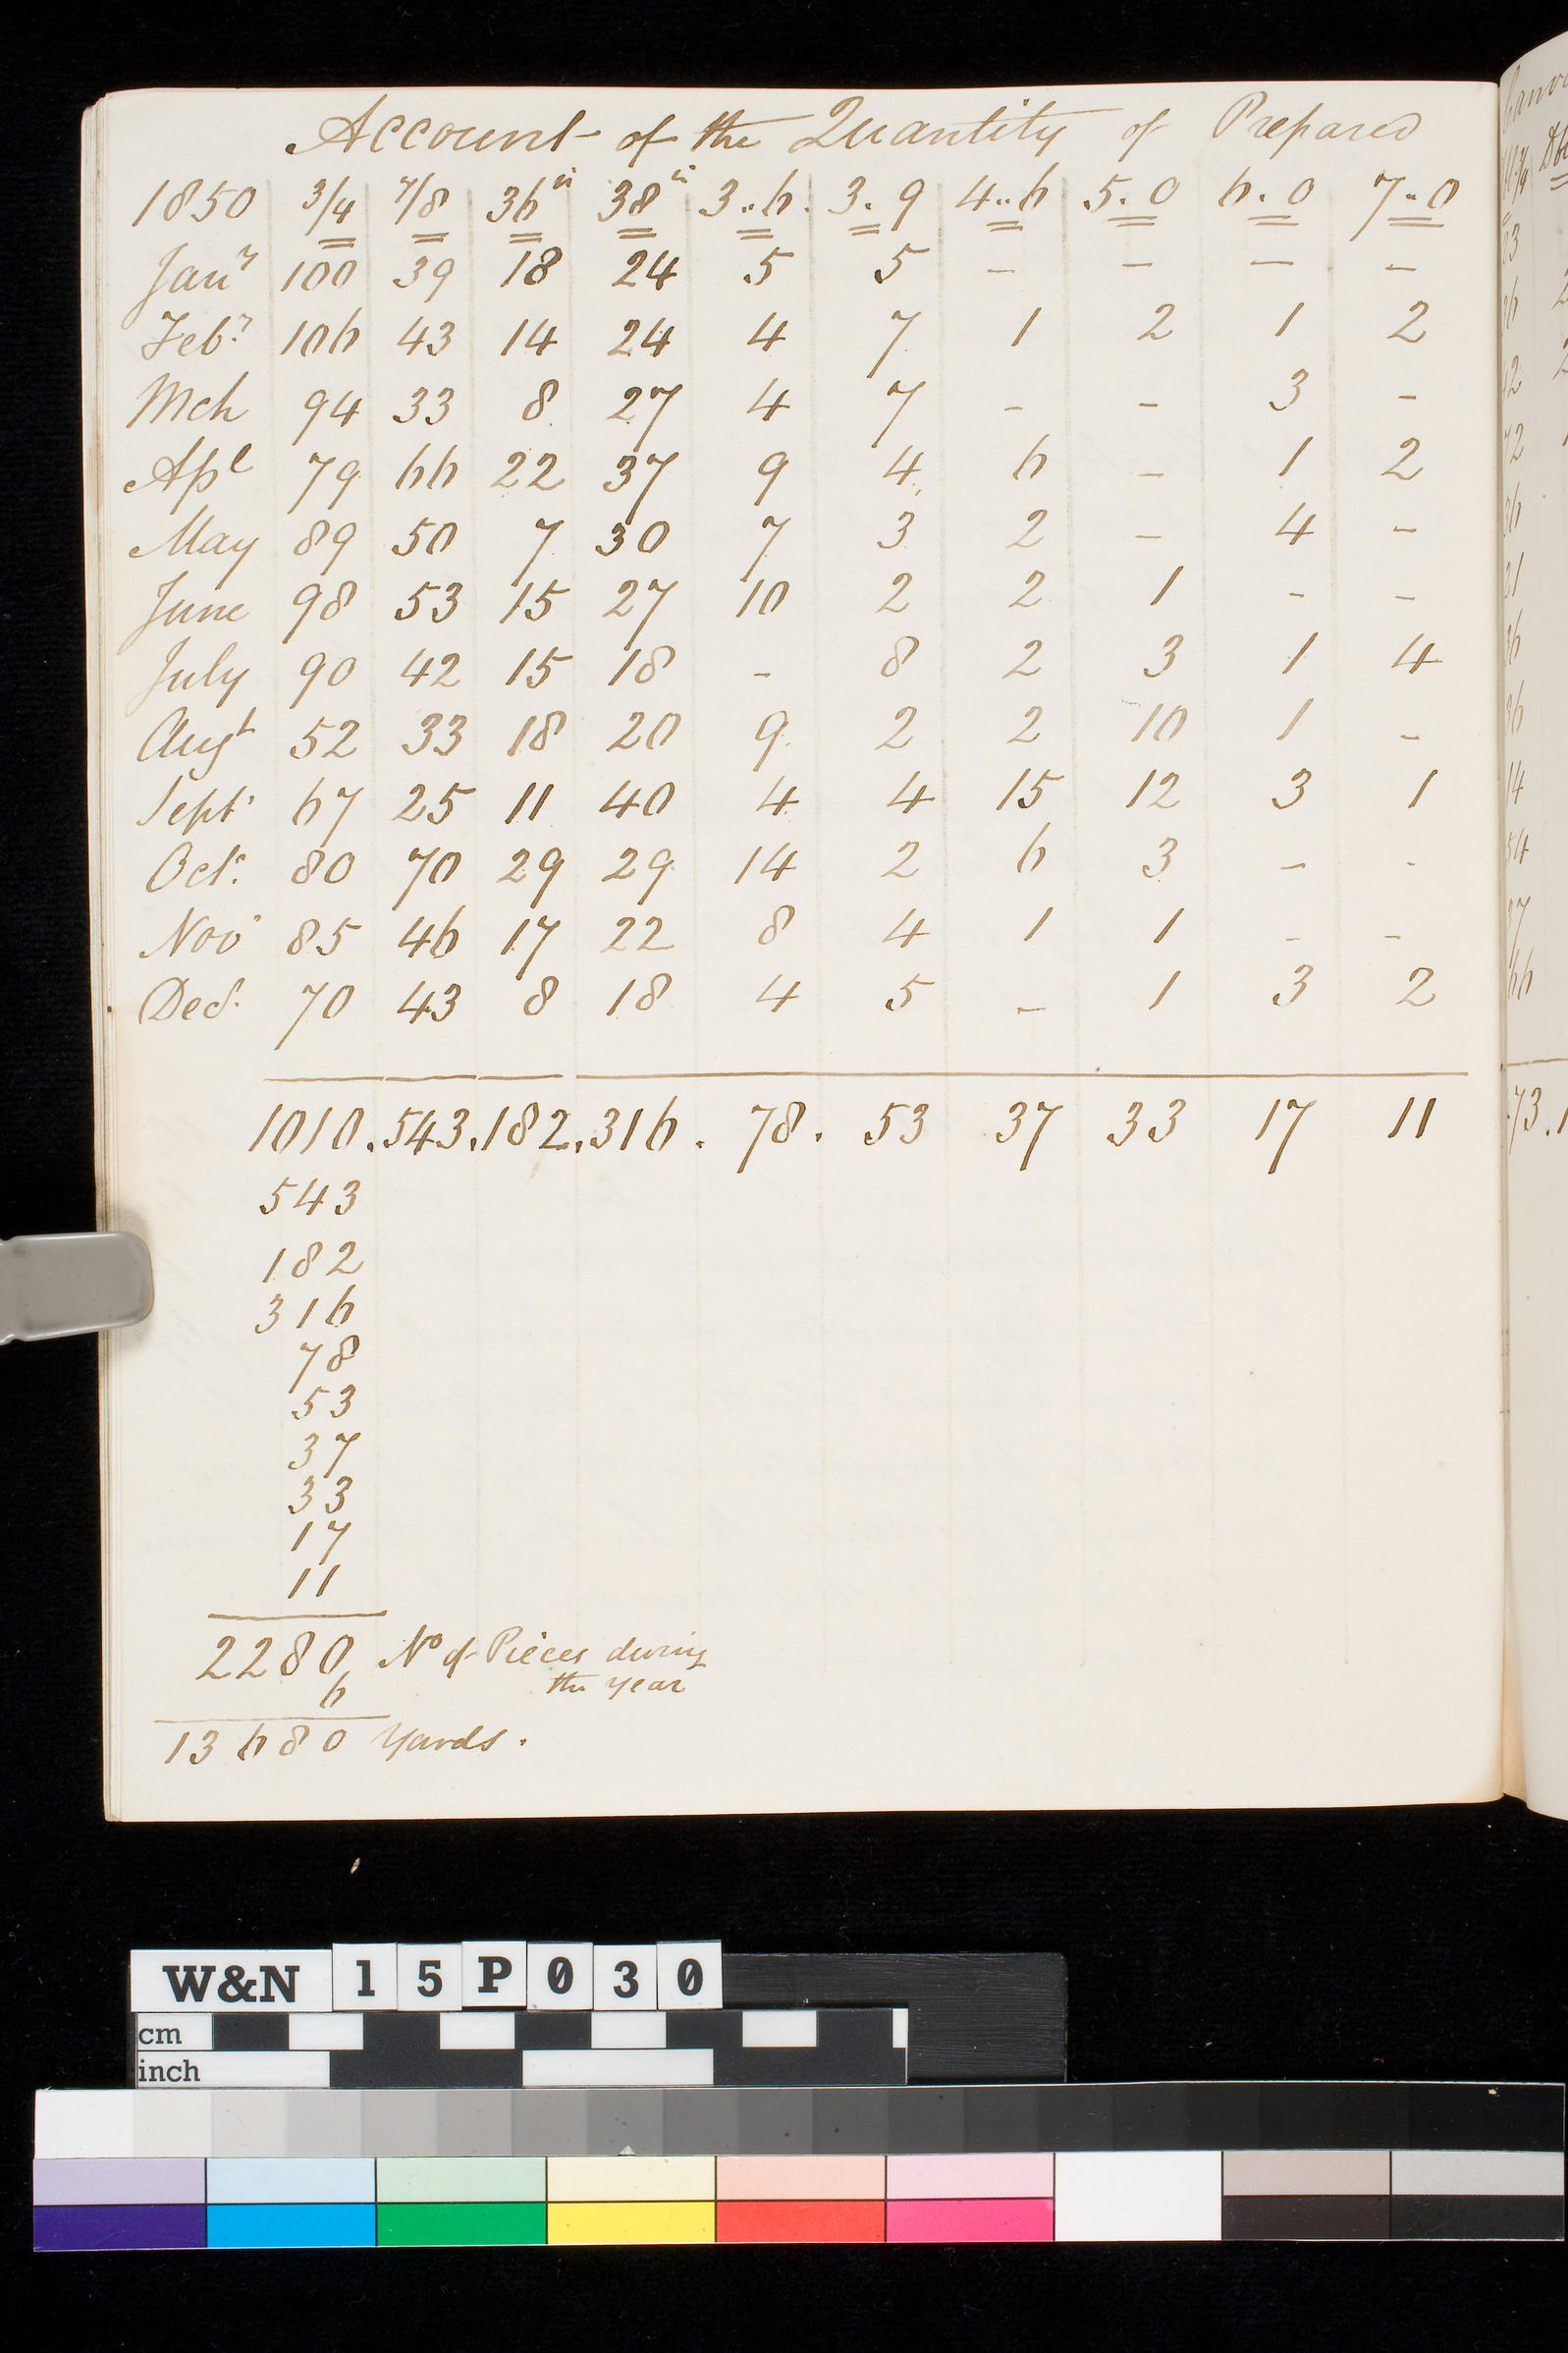 Account of the Quantity of Prepared
1850 3/4 7/8 36in 38in 3..6. 3.9 4..6 5.0 6.0 7..0
Jany 100 39 18 24 5 5 – – – –
Feby 106 43 14 24 4 7 1 2 1 2
Mch 94 33 8 27 4 7 – – 3 –
Apl 79 66 22 37 9 4 6 – 1 2
May 89 50 7 30 7 3 2 – 4 –
June 98 53 15 27 10 2 2 1 – –
July 90 42 15 18 – 8 2 3 1 4
Augt 52 33 18 20 9 2 2 10 1 –
Sept. 67 25 11 40 4 4 15 12 3 1
Oct. 80 70 29 29 14 2 6 3 – -
Nov. 85 46 17 22 8 4 1 1 – –
Decr. 70 43 8 18 4 5 – 1 3 2
1010.543.182.316. 78. 53 37 33 17 11
543
182
316
78
53
37
33
17
11
2280 No of Pieces during
the year
6
13680 Yards.
W&N 15P030
cm
inch